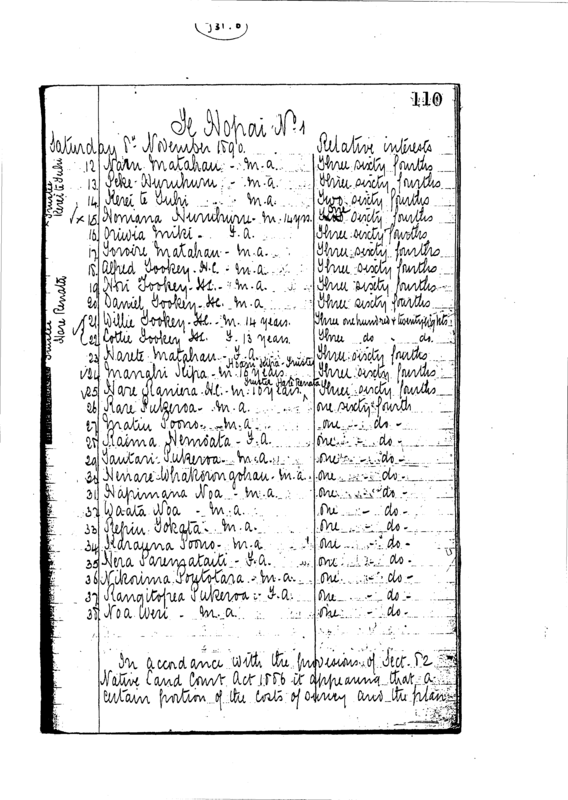 731.0
110
Te Hopai No 1
Saturday 8th November 1890.
Relative interests
12 Naru Matahau - m.a. Three sixty fourths
13 Peke Huruhuru - m.a. Three sixty fourths
14 Kerei te Tuhi - m.a. Two sixty fourths
Trustee Kerei te Tuhi
x 15 Honiana Huruhuru - m. 14 yrs. one sixty fourths
16 Oriwia Miki - F.a. Three sixty fourths
17 Matahau - m.a. Three sixty fourths
18 Alfred Tookey - H.C. - m.a. Three sixty fourths
19 Hori Tookey - H.C. - m.a. Three sixty fourths
20 Daniel Tookey - H.C. m.a. Three sixty fourths
Trustee Hare Renata
21 Willie Tookey - H.C. - m. 14 years. Three one hundred & twenty eighths
22 Lottie Tookey H.C. F. 13 years. Three do - do.
23 Matahau - F.a. Three sixty fourths
24 - m. 10 years Trustee Three sixty fourths
25 Hare Raniera H.C. - m. 10 years. Trustee Hare Renata Three sixty fourths
26 Rare Pukeroa - m.a. one sixty fourth
27 Poono - m.a. one - do -
28 Raima - F.a. one - do -
29 Tautari Pukeroa - m.a. one - do -
30 Henare Whakorongohau - m.a. one - do -
31 Hapimana Noa - m.a. one - do -
32 Waata Noa - m.a. one - do -
33 m.a. one - do -
34 Karauna Poono - m.a one - do -
35 Hera Parengataiti - F.a. one - do -
36 Nikorima Poutotara - m.a. one - do -
37 Rangitopea Pukeroa - F.a. one - do -
38 Noa Weri - m.a. one - do -
In accordance with the provisions of Sect. 82
Native Land Court Act 1886 it appearing that a
certain portion of the costs of survey and the plan